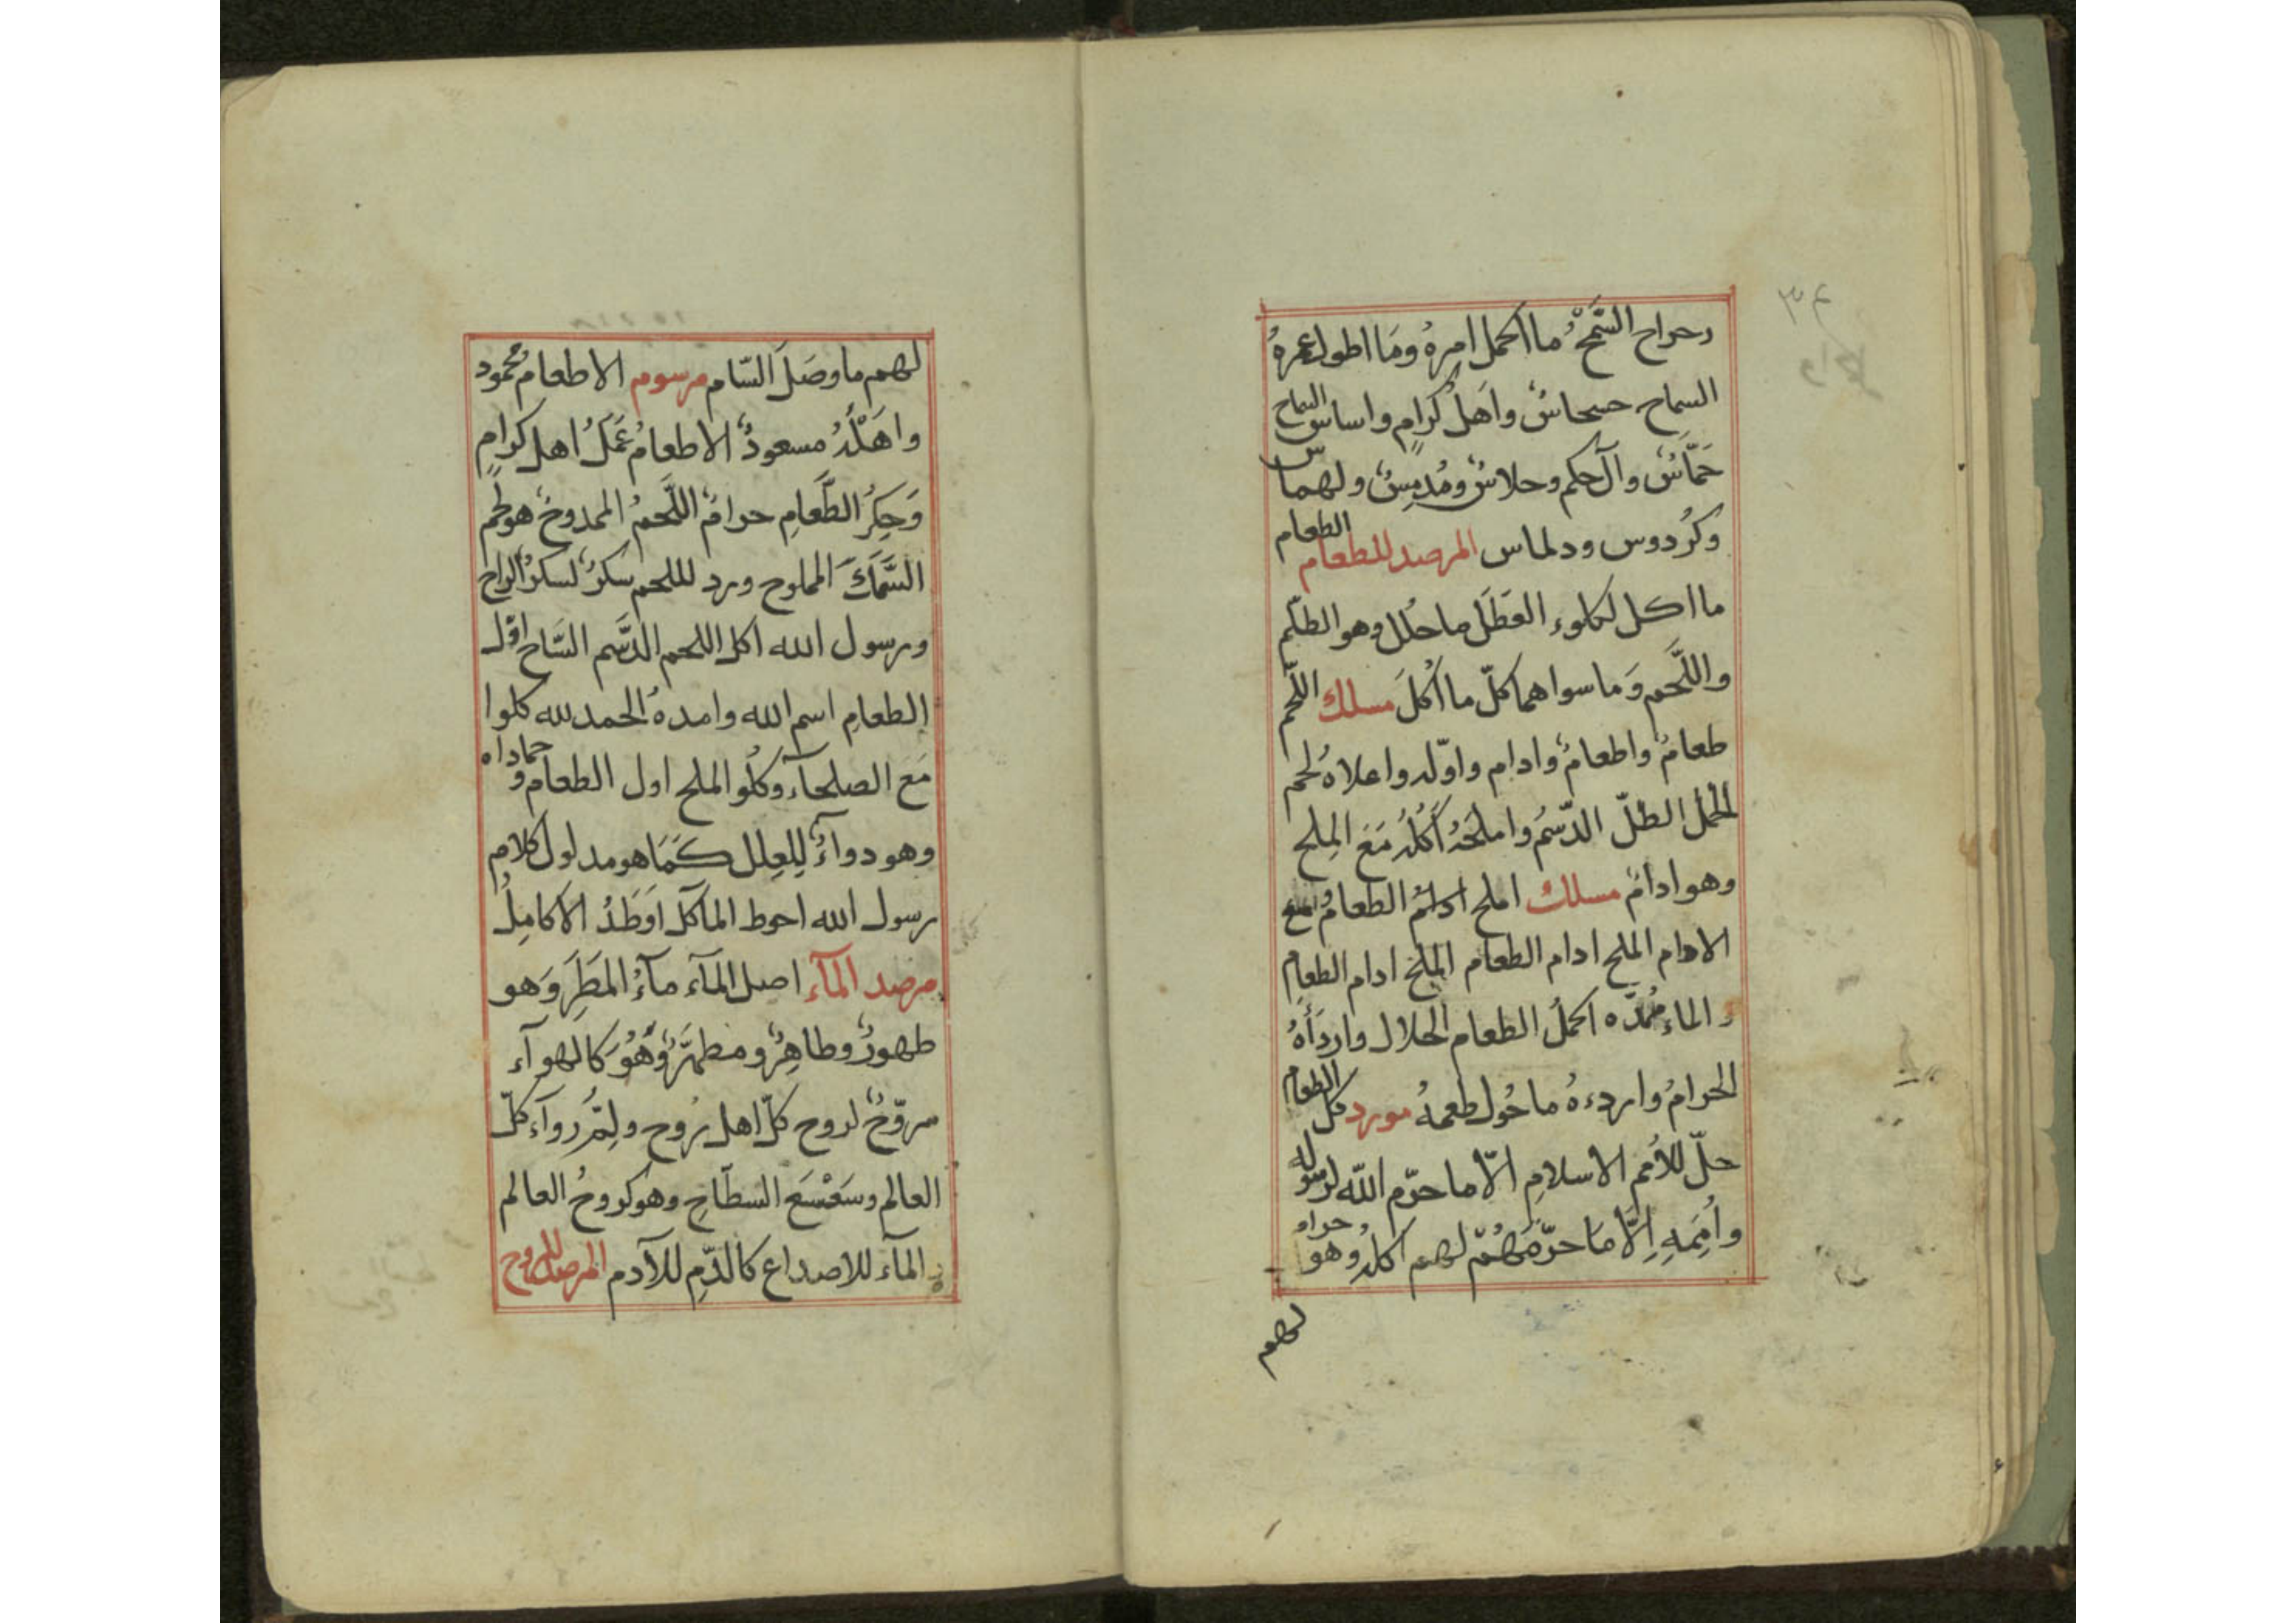 رحراح السَّمْحُ ما اكمل امره وَمَا اطول عمرهُ
السماح حسحاسٌ واَهلُ كرامٍ واساس السماح
حَمَّاسٌ وآل حكم وحلاسٌ ومُدمِسٌ ولهماس
وكُردوس ودلماس المرصد للطعام الطعام
ما اكل لكلوء العَطَل ما حلل وهو الطّعم
واللَّحم وَما سواهما كلّ ما اُكلَ مسلك اللّحم
طعامٌ واطعامٌ وادام واوّله واعلاهُ لحم
الحمل الطلّ الدّسمُ واملحَهُ اكلُهُ مَعَ المِلح
وهو ادامٌ مسلك املح ادامُ الطعام
الادام الملح ادام الطعام الملح ادام الطعام
الماء مُمدّه اكملُ الطعام الحلال واردَأهُ
الحرامُ واردءهُ ما حُول طعمهُ مورد كل الطعام
حلّ للأمم الاسلامِ الّا ما حرّم اللّه لرسوله
واُمَمِهِ اِلَّا مَا حرّمَهُمّ لهم اكله وهو حرام
لهم
لهم ما وصَلَ السّام مرسوم الاطعام محمود
واهَلُهُ مسعودٌ الاطعامُ عَمَلُ اهل كرامٍ
وَحِكرُ الطَّعامِ حرامٌ اللَّحمُ الممدوحُ هو لحم
السَّمَكَ المملوح ورد للحم سكرٌ لسكرُ الراح
ورسول الله اكل اللحم الدَّسم السَّاح اوّل
الطعامِ اسم الله وامدهُ الحمد لله كلوا
مَعَ الصلحآء وكُلُو الملح اول الطعام وحماداه
وهو دوآءٌ لِلعِلل كَمَا هو مدلول كلامِ
رسول الله احوط المآكل اَوطَدُ الاكامِل
مرصد المآء اصل المآء مآءُ المَطَرَ وَهو
طهورٌ وطاهِرٌ ومطهَّرٌ وَهُوَ كالهوآء
مروّحٌ لروح كلّ اهل رُوح ولِمُّ روآء كلّ
العالم وسَعْسَع السطّاح وهو كروحُ العالم
المآء للاصداع كالدّمِ للآدم المرصد للروح